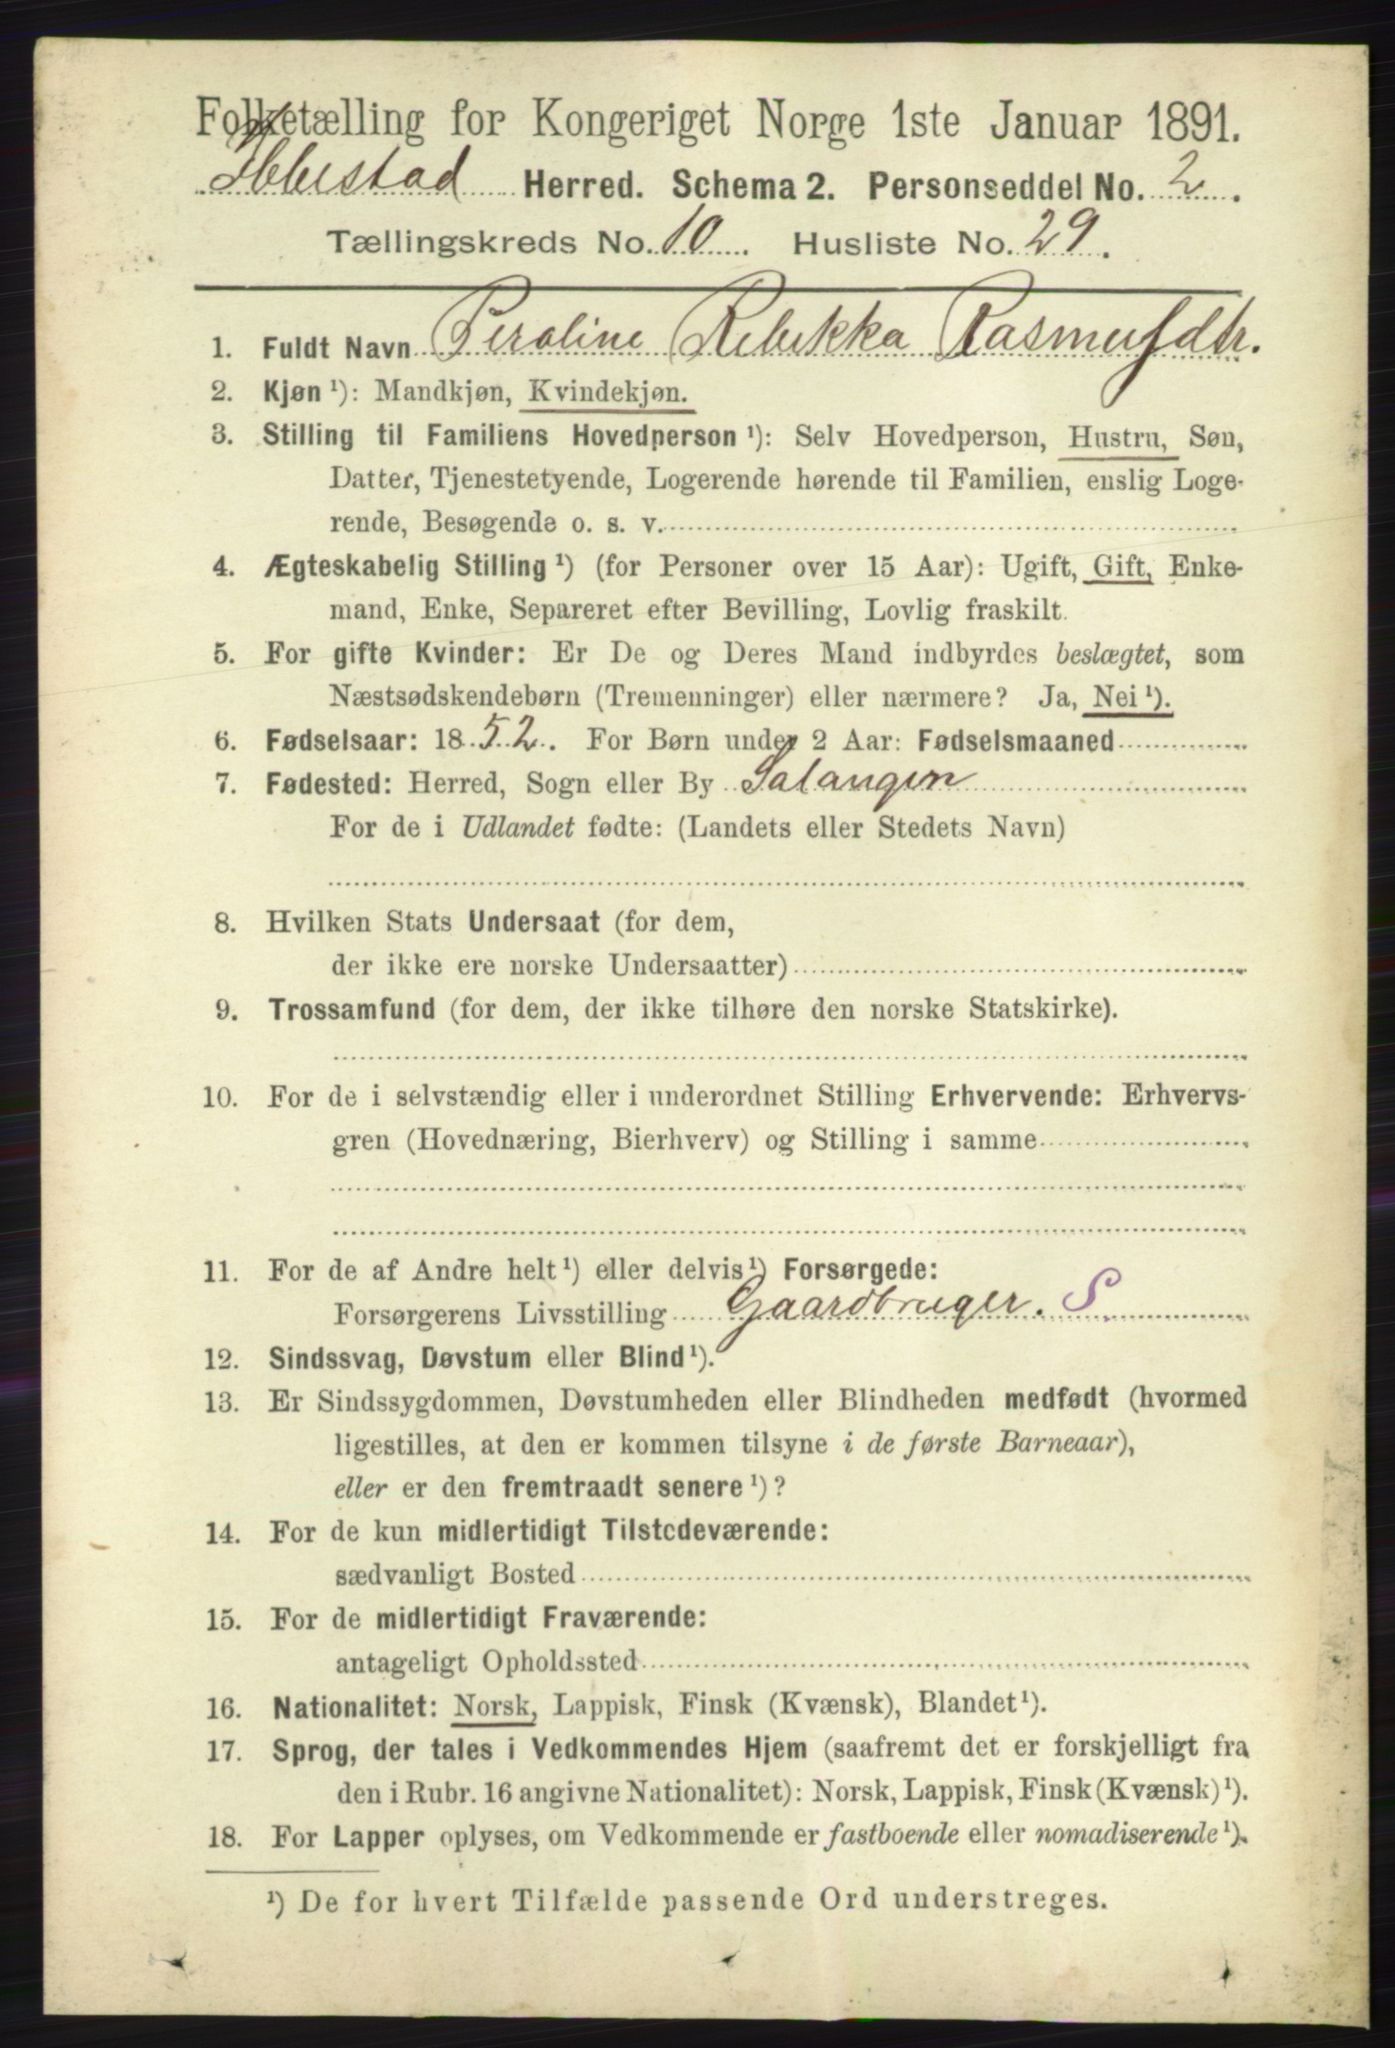 Folketælling for Kongeriget Norge 1ste Januar 1891.
Ibbestad Herred. Schema 2. Personseddel No. 2.
Tællingskreds No. 10. Husliste No. 29.
1. Fuldt Navn Peroline Rebekka Rasmusdtr.
2. Kjøn ¹): Mandkjøn, Kvindekjøn.
3. Stilling til Familiens Hovedperson ¹): Selv Hovedperson, Hustru, Søn,
Datter, Tjenestetyende, Logerende hørende til Familien, enslig Loge-
rende, Besøgende o. s. v.
4. Ægteskabelig Stilling ¹) (for Personer over 15 Aar): Ugift, Gift, Enke-
mand, Enke, Separeret efter Bevilling, Lovlig fraskilt.
5. For gifte Kvinder: Er De og Deres Mand indbyrdes beslægtet, som
Næstsødskendebørn (Tremenninger) eller nærmere? Ja, Nei ¹).
6. Fødselsaar: 1852. For Børn under 2 Aar: Fødselsmaaned
7. Fødested: Herred, Sogn eller By Salangen
For de i Udlandet fødte: (Landets eller Stedets Navn)
8. Hvilken Stats Undersaat (for dem,
der ikke ere norske Undersaatter)
9. Trossamfund (for dem, der ikke tilhøre den norske Statskirke).
10. For de i selvstændig eller i underordnet Stilling Erhvervende: Erhvervs-
gren (Hovednæring, Bierhverv) og Stilling i samme
11. For de af Andre helt ¹) eller delvis ¹) Forsørgede:
Forsørgerens Livsstilling Gaardbruger. S
12. Sindssvag, Døvstum eller Blind ¹).
13. Er Sindssygdommen, Døvstumheden eller Blindheden medfødt (hvormed
ligestilles, at den er kommen tilsyne i de første Barneaar),
eller er den fremtraadt senere ¹)?
14. For de kun midlertidigt Tilstedeværende:
sædvanligt Bosted
15. For de midlertidigt Fraværende:
antageligt Opholdssted
16. Nationalitet: Norsk, Lappisk, Finsk (Kvænsk), Blandet ¹).
17. Sprog, der tales i Vedkommendes Hjem (saafremt det er forskjelligt fra
den i Rubr. 16 angivne Nationalitet): Norsk, Lappisk, Finsk (Kvænsk) ¹).
18. For Lapper oplyses, om Vedkommende er fastboende eller nomadiserende ¹).
¹) De for hvert Tilfælde passende Ord understreges.